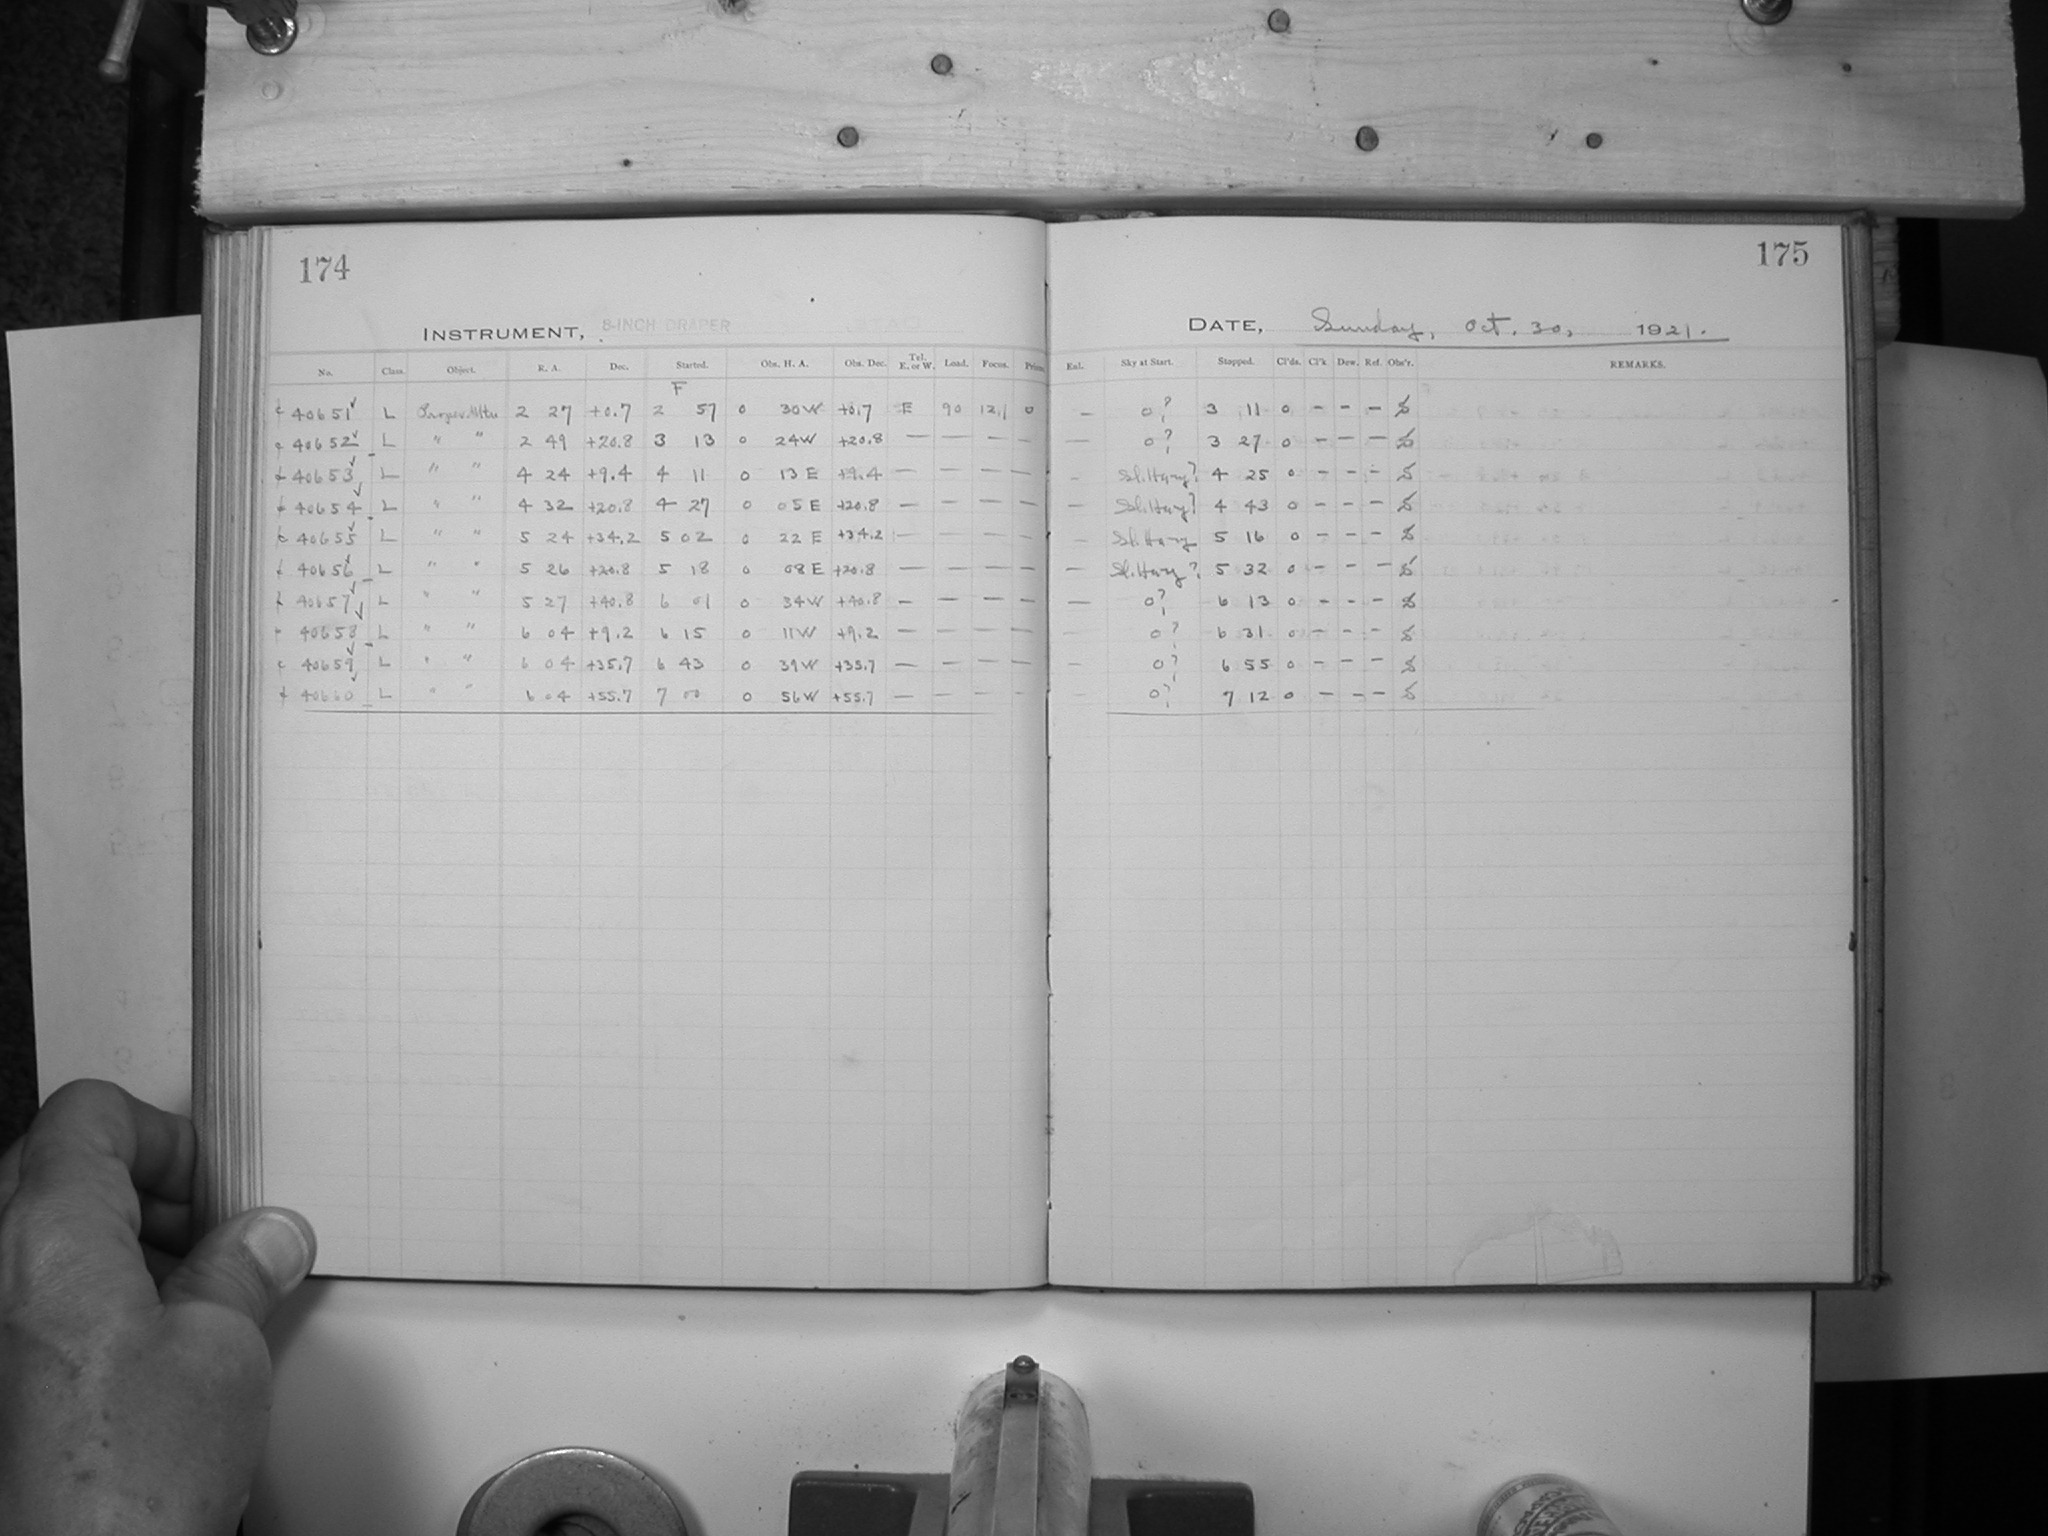 174
175
INSTRUMENT, 8-INCH DRAPER
DATE, Sunday, Oct. 30, 1921.
No. Class. Object. R. A. Dec. Started. Obs. H. A. Obs. Dec. Tel. E. or W. Load. Focus. Prism. Enl. Sky at Start. Stopped. Cl'ds. Cl'k Dew. Ref. Obs'r. REMARKS.
F
40651 L Proper Mtn 2 27 +0.7 2 57 0 30W +0.7 E 90 12.1 0 — 0? 3 11 0 – – –
40652 L " " 2 49 +20.8 3 13 0 24W +20.8 — — — — — 0? 3 27 0 – – –
40653 L " " 4 24 +9.4 4 11 0 13 E +9.4 — — — — – Sl. Hazy? 4 25 0 – – –
40654 L " " 4 32 +20.8 4 27 0 05 E +20.8 — — — — — Sl. Hazy? 4 43 0 – – –
40655 L " " 5 24 +34.2 5 02 0 22 E +34.2 — — — — – Sl. Hazy 5 16 0 – – –
40656 L " " 5 26 +20.8 5 18 0 08 E +20.8 — — — — — Sl. Hazy? 5 32 0 – – –
40657 L " " 5 27 +40.8 6 01 0 34W +40.8 — — — — — 0? 6 13 0 – – –
40658 L " " 6 04 +9.2 6 15 0 11W +9.2 — — — — — 0? 6 31 0 – – –
40659 L " " 6 04 +35.7 6 43 0 39W +35.7 — — — — – 0? 6 55 0 – – –
40660 L " " 6 04 +55.7 7 00 0 56W +55.7 — — — — – 0? 7 12 0 – – –